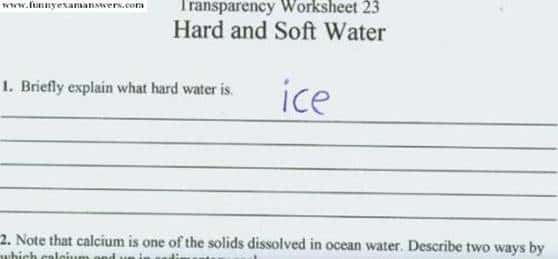 www.funnyexamanswers.com
Transparency Worksheet 23
Hard and Soft Water
1. Briefly explain what hard water is. ice
2. Note that calcium is one of the solids dissolved in ocean water. Describe two ways by
which calcium